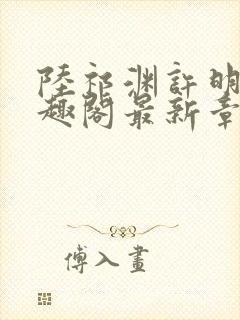 陸祁渊許明
趣閣最新章
傅入畫